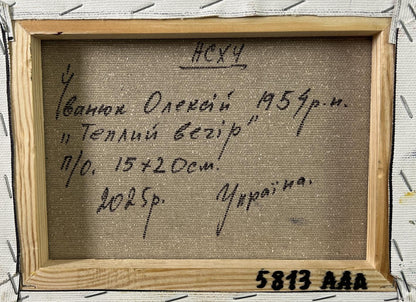 НСХУ
Іванюк Олексій 1954р.н.
„Теплий вечір"
п/о. 15+20см.
2025р. Україна.
5813 AAA